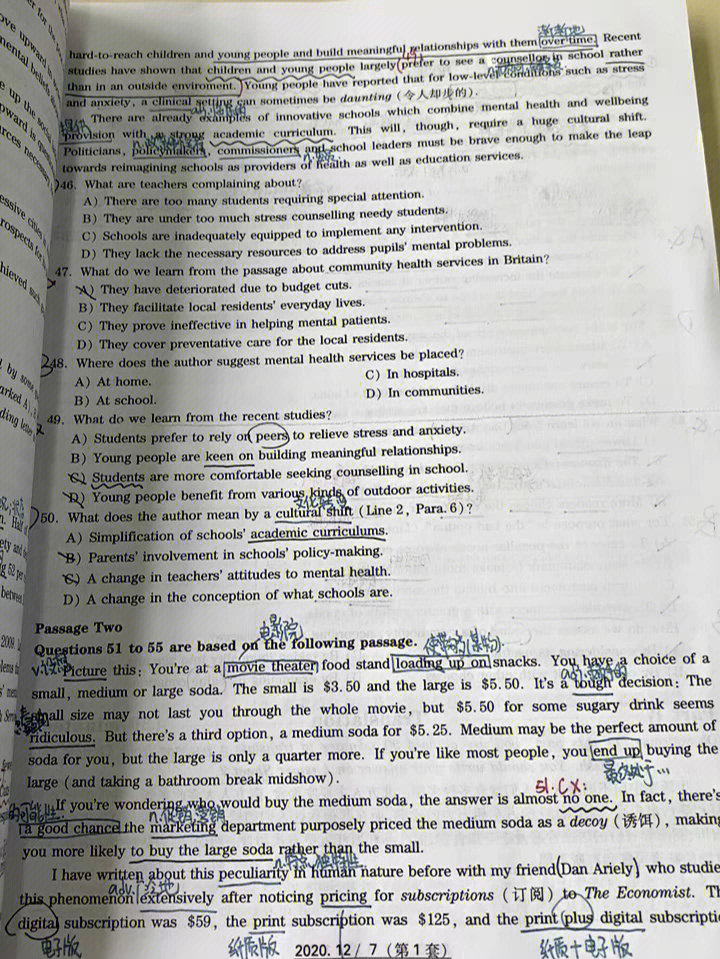 渐渐地
hard-to-reach children and young people and build meaningful relationships with them over time. Recent
studies have shown that children and young people largely prefer to see a counsellor in school rather
than in an outside enviroment. Young people have reported that for low-level conditions such as stress
and anxiety, a clinical setting can sometimes be daunting (令人却步的).
There are already examples of innovative schools which combine mental health and wellbeing
provision with a strong academic curriculum. This will, though, require a huge cultural shift.
Politicians, policymakers, commissioners and school leaders must be brave enough to make the leap
towards reimagining schools as providers of health as well as education services.
46. What are teachers complaining about?
A) There are too many students requiring special attention.
B) They are under too much stress counselling needy students.
C) Schools are inadequately equipped to implement any intervention.
D) They lack the necessary resources to address pupils' mental problems.
47. What do we learn from the passage about community health services in Britain?
A) They have deteriorated due to budget cuts.
B) They facilitate local residents' everyday lives.
C) They prove ineffective in helping mental patients.
D) They cover preventative care for the local residents.
48. Where does the author suggest mental health services be placed?
A) At home. C) In hospitals.
B) At school. D) In communities.
49. What do we learn from the recent studies?
A) Students prefer to rely on peers to relieve stress and anxiety.
B) Young people are keen on building meaningful relationships.
C) Students are more comfortable seeking counselling in school.
D) Young people benefit from various kinds of outdoor activities.
50. What does the author mean by a cultural shift (Line 2, Para. 6)?
A) Simplification of schools' academic curriculums.
B) Parents' involvement in schools' policy-making.
C) A change in teachers' attitudes to mental health.
D) A change in the conception of what schools are.
Passage Two
电影院
Questions 51 to 55 are based on the following passage.
Picture this: You're at a movie theater food stand loading up on snacks. You have a choice of a
small, medium or large soda. The small is $3.50 and the large is $5.50. It's a tough decision: The
small size may not last you through the whole movie, but $5.50 for some sugary drink seems
ridiculous. But there's a third option, a medium soda for $5.25. Medium may be the perfect amount of
soda for you, but the large is only a quarter more. If you're like most people, you end up buying the
large (and taking a bathroom break midshow).
最终处于…
51. CX:
If you're wondering who would buy the medium soda, the answer is almost no one. In fact, there's
a good chance the marketing department purposely priced the medium soda as a decoy (诱饵), making
you more likely to buy the large soda rather than the small.
I have written about this peculiarity in human nature before with my friend Dan Ariely, who studie
this phenomenon extensively after noticing pricing for subscriptions (订阅) to The Economist. Th
digital subscription was $59, the print subscription was $125, and the print plus digital subscripti
电子版 纸质版 纸质+电子版
2020. 12 / 7 (第 1 套)